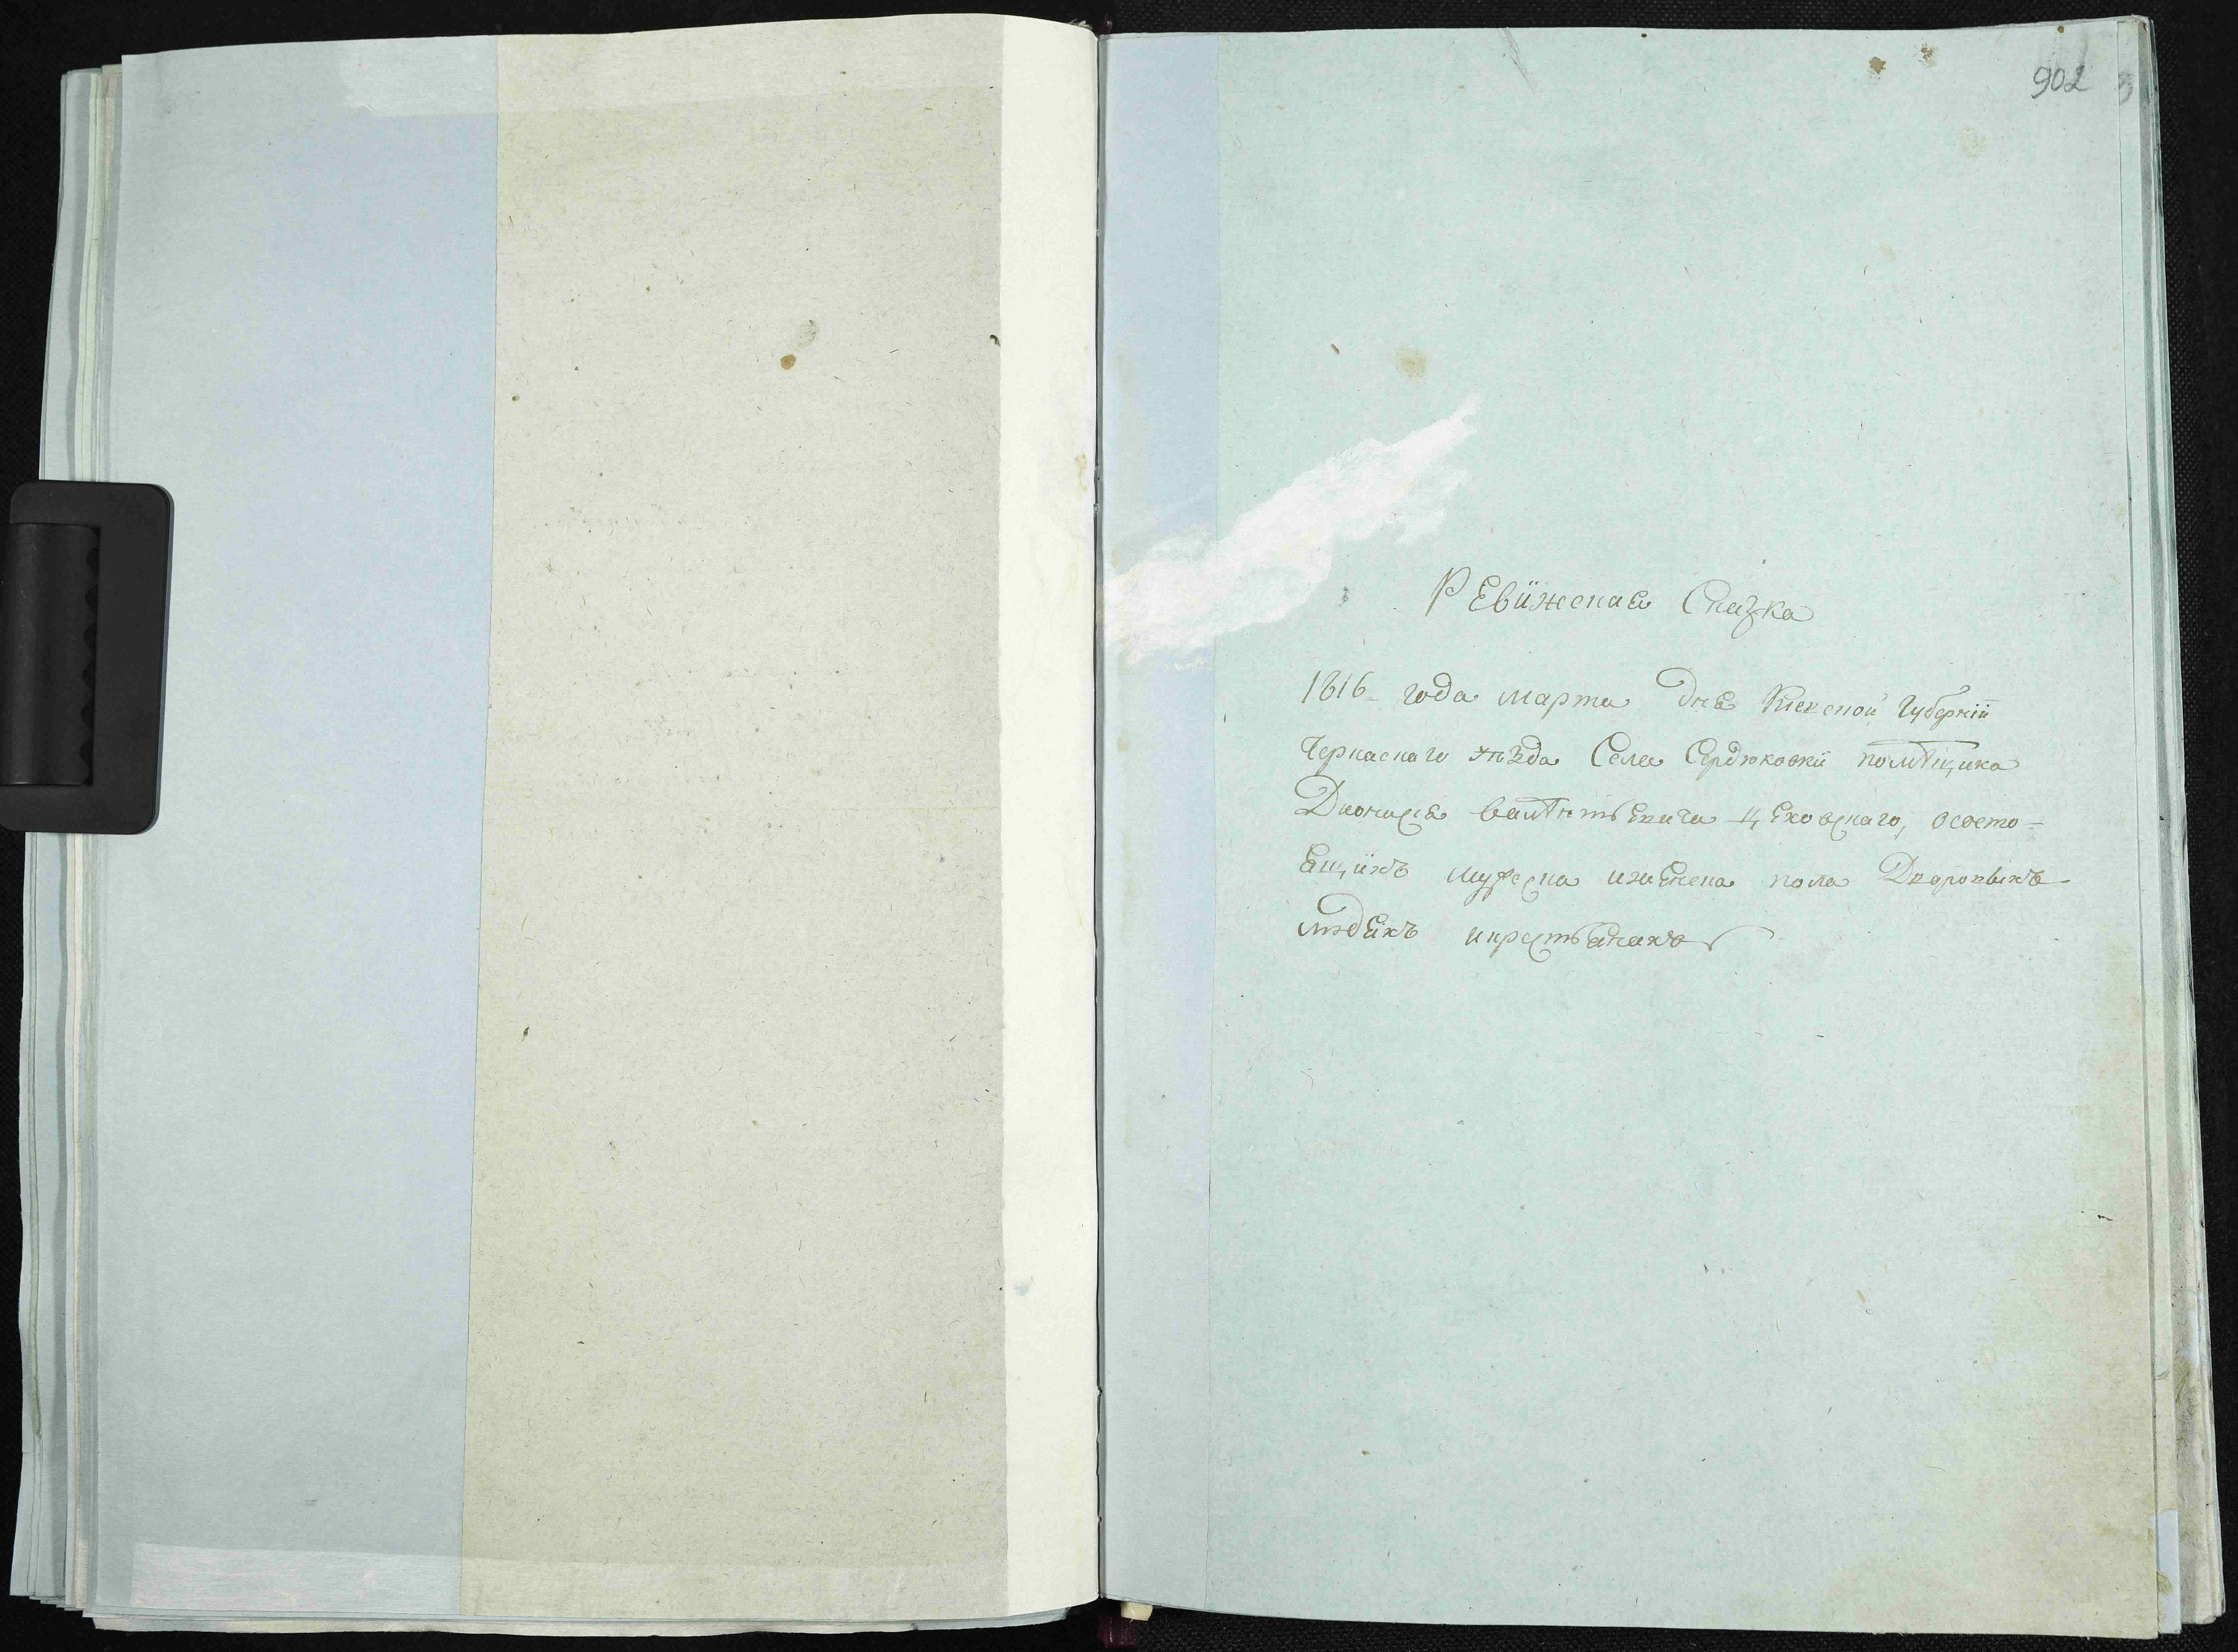 902
РЕвїжская Сказка
1816 года марта дня Киевской Губернїи
Черкаскаго уѣзда Села Сердюковки помѣщика
Дионисия Цеховскаго, ососто-
ящихъ мужеска иженска пола Дворовыхъ
людяхъ икрестьянахъ